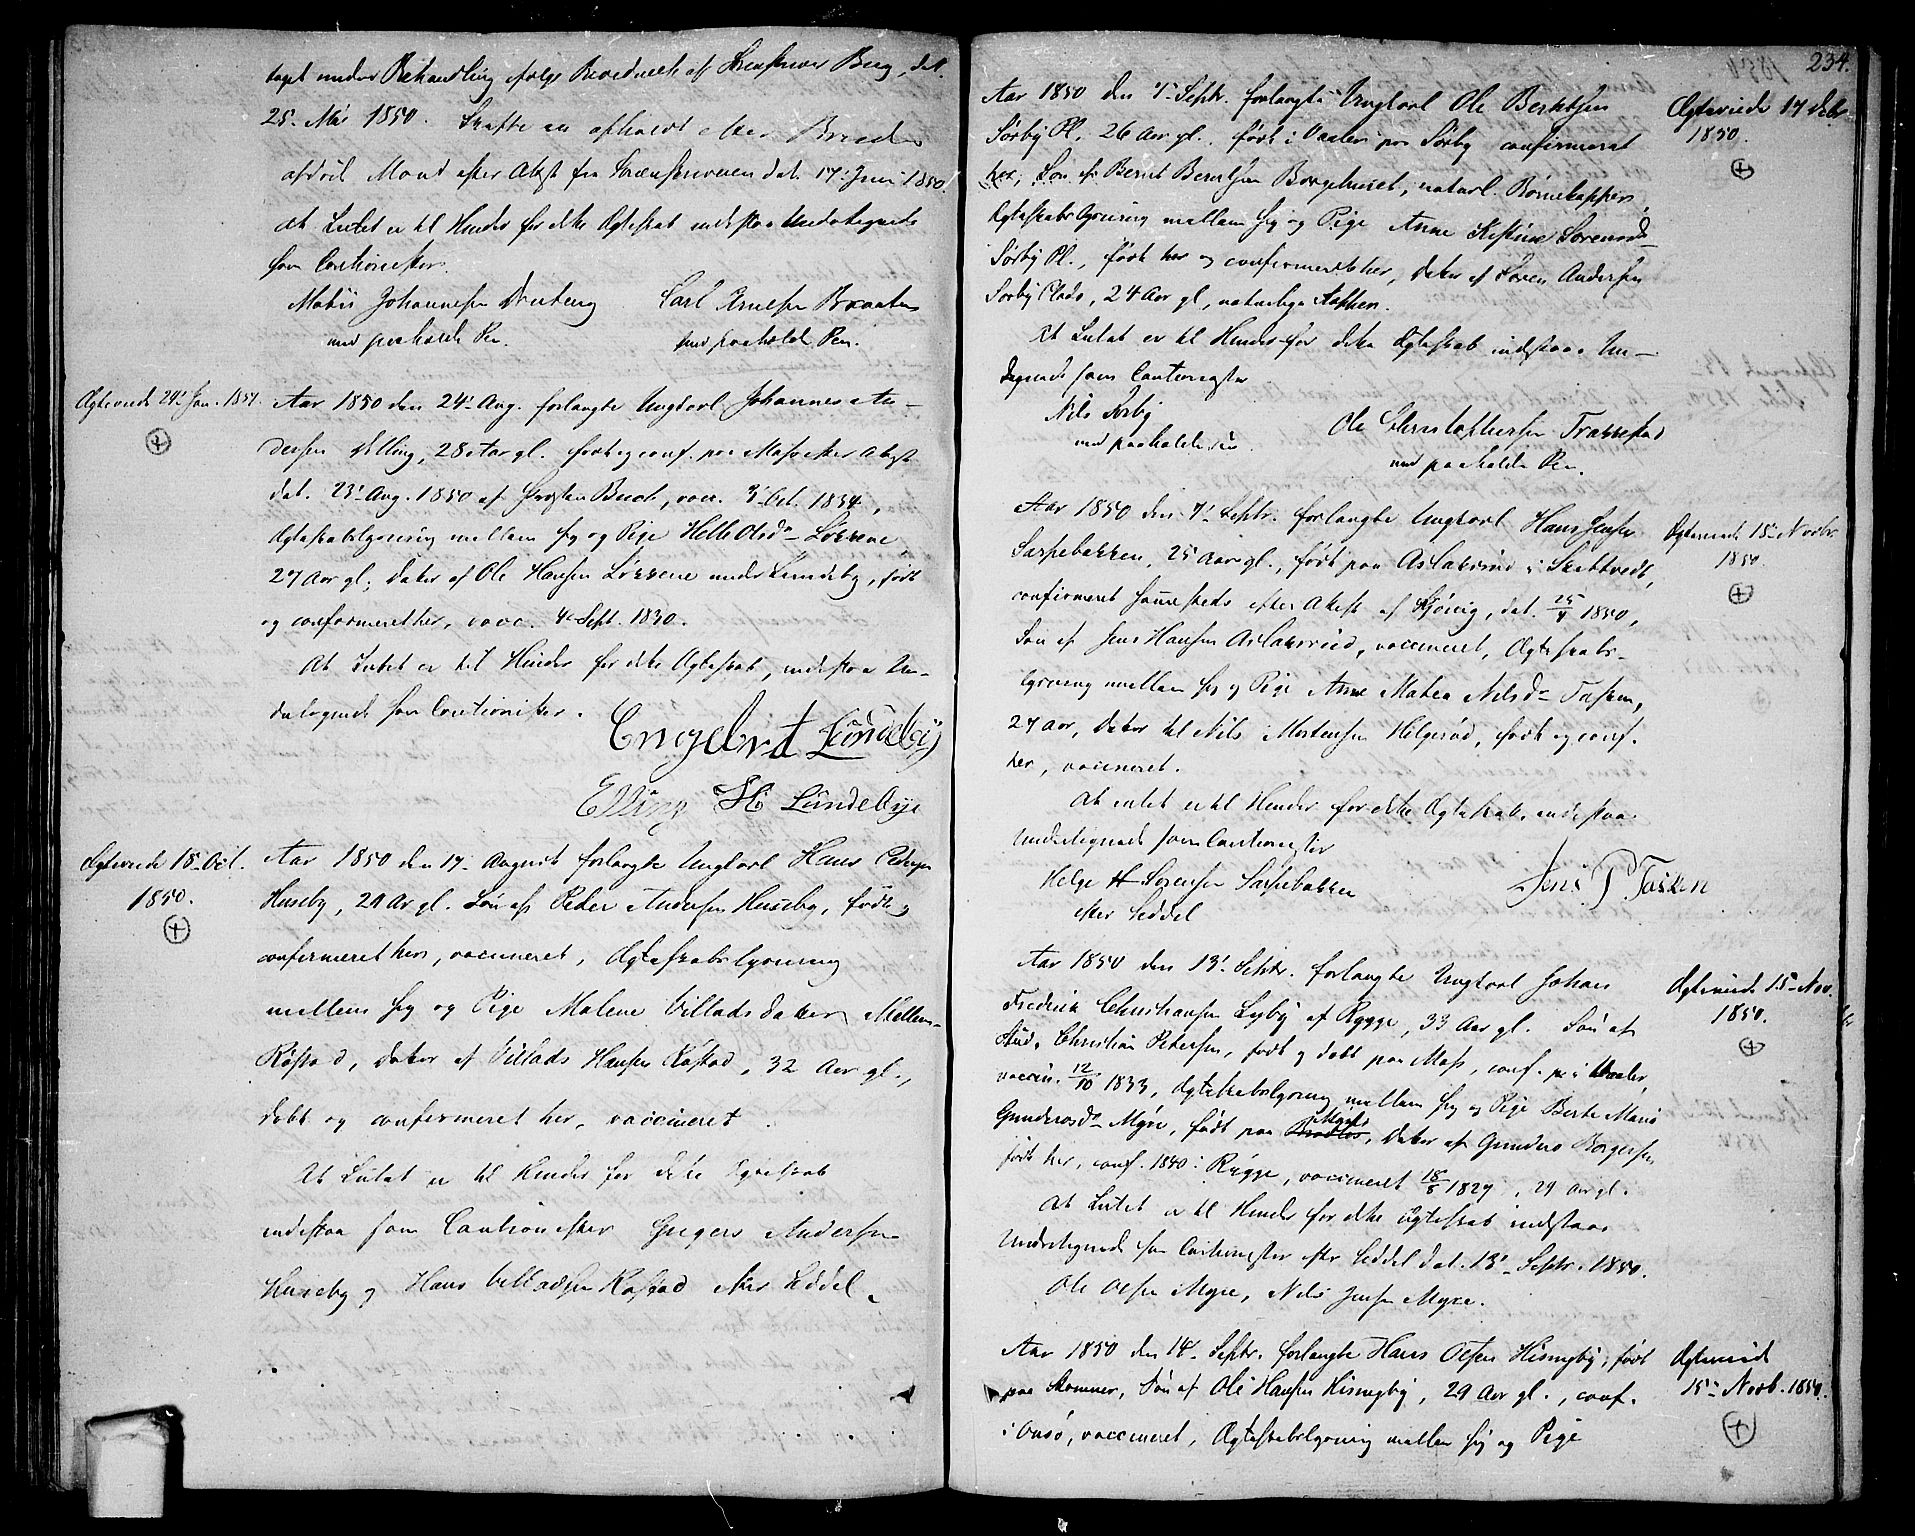 taget under Behandling ifølge Bevidnelse af Berg, dat.
25de Mai 1850. Skifte er afholdt efter Brudens
afdøde Mand efter Attest fra Sorenskriveren dat. 17' Juni 1850.
At Intet er til Hinder for dette Ægteskab indestaa Undertegnede
som Cautionister.
Mathis Johannesen
med paaholdt Pen.
Carl Braaten
med paaholdt Pen.
Ægteviede 24' Jan. 1851.
Aar 1850 den 24' Aug. forlangte Ungkarl Johannes An-
dersen Delling, 28 Aar gl. født og conf. paa Moss efter Attest
dat. 23' Aug. 1850 af Buch, vacc. 3' Oct. 1834,
Ægteskabslysning mellem sig og Pige Helle Olsdr Løkkene
27 Aar gl., Datter af Ole Hansen Løkkene under Lundeby, født
og confirmeret her, vacc. 4 Sept. 1830.
At Intet er til Hinder for dette Ægteskab, indestaa Un-
dertegnede som Cautionister.
Engelbret Lundeby
Elling H Lundebye
Ægteviede 18 Oct.
1850.
Aar 1850 den 17 August forlangte Ungkarl Hans Pedersen
Huseby, 29 Aar gl. Søn af Peder Andersen Huseby, født og
confirmeret her, vaccineret, Ægteskabslysning
mellem sig og Pige Malene Villadsdatter Mellem-
Røstad, Datter af Villads Hansen Røstad, 32 Aar gl.,
døbt og confirmeret her, vaccineret.
At Intet er til Hinder for dette Ægteskab
indestaa som Cautionister Gregers Andersen
Huseby og Hans Villadsen Røstad efter Seddel.
234.
Aar 1850 den 7' Septr. forlangte Ungkarl Ole Berntsen
Sørby Pl. 26 Aar gl., født i Vaaler paa Sørby confirmeret
her, Søn af Bernt Berntsen Borgehuset, naturl. Børnekopper,
Ægteskabslysning mellem sig og Pige Anne Kistine Sørensdr
Sørby Pl., født her og confirmeret her, Datter af Søren Andersen
Sørby Plads, 24 Aar gl., naturlige Kopper.
At Intet er til Hinder for dette Ægteskab indestaa Un-
dertegnede som Cautionister
Nils Sørby
med paaholden Pen
Ole Christophersen Trææstad
med paaholdt Pen.
Ægteviede 17 Octbr
1850.
Aar 1850 den 7' Septr. forlangte Ungkarl Hans Jensen
Sarpebakken, 25 Aar gl., født paa Aslaksrud i Skibtvedt,
confirmeret sammesteds efter Attest af Gjørvig, dat. 25/4 1850,
Søn af Jens Hansen Aslaksrud, vaccineret, Ægteskabs-
lysning mellem sig og Pige Anne Matea Nilsdr Tasken,
27 Aar, Datter til Nils Mortensen Helgerød, født og conf.
her, vaccineret.
At intet er til Hinder for dette Ægteskab indestaa
Undertegnede som Cautionister
Helge H Sørensen Sarpebakken
efter Seddel
Jens P. Tasken
Ægteviede 15 Novbr.
1850.
Aar 1850 den 13' Septr. forlangte Ungkarl Johan
Fredrik Christiansen Lyby af Rygge, 33 Aar gl. Søn af
Stud. Christian Petersen, født og døbt paa Moss, conf. i Vaaler,
vaccin. 12/10 1833, Ægteskabslysning mellem sig og Pige Berte Marie
Gundersdr Myre, født paa Datter af Gunders Borgersen
født her, conf. 1840 i Rygge, vaccineret 18/8 1827, 29 Aar gl.
At Intet er til Hinder for dette Ægteskab indestaa
Undertegnede som Cautionister efter Seddel dat. 13' Septr. 1850.
Ole Olsen Myre, Nils Jensen Myre.
Ægteviede 15 Nov.
1850.
Aar 1850 den 14' Septr. forlangte Hans Olsen Hisingby, født
paa Kommer, Søn af Ole Hansen Hisingby, 29 Aar gl., conf.
i Onsø, vaccineret, Ægteskabslysning mellem sig og Pige
Ægteviede
15 Novb. 1850.